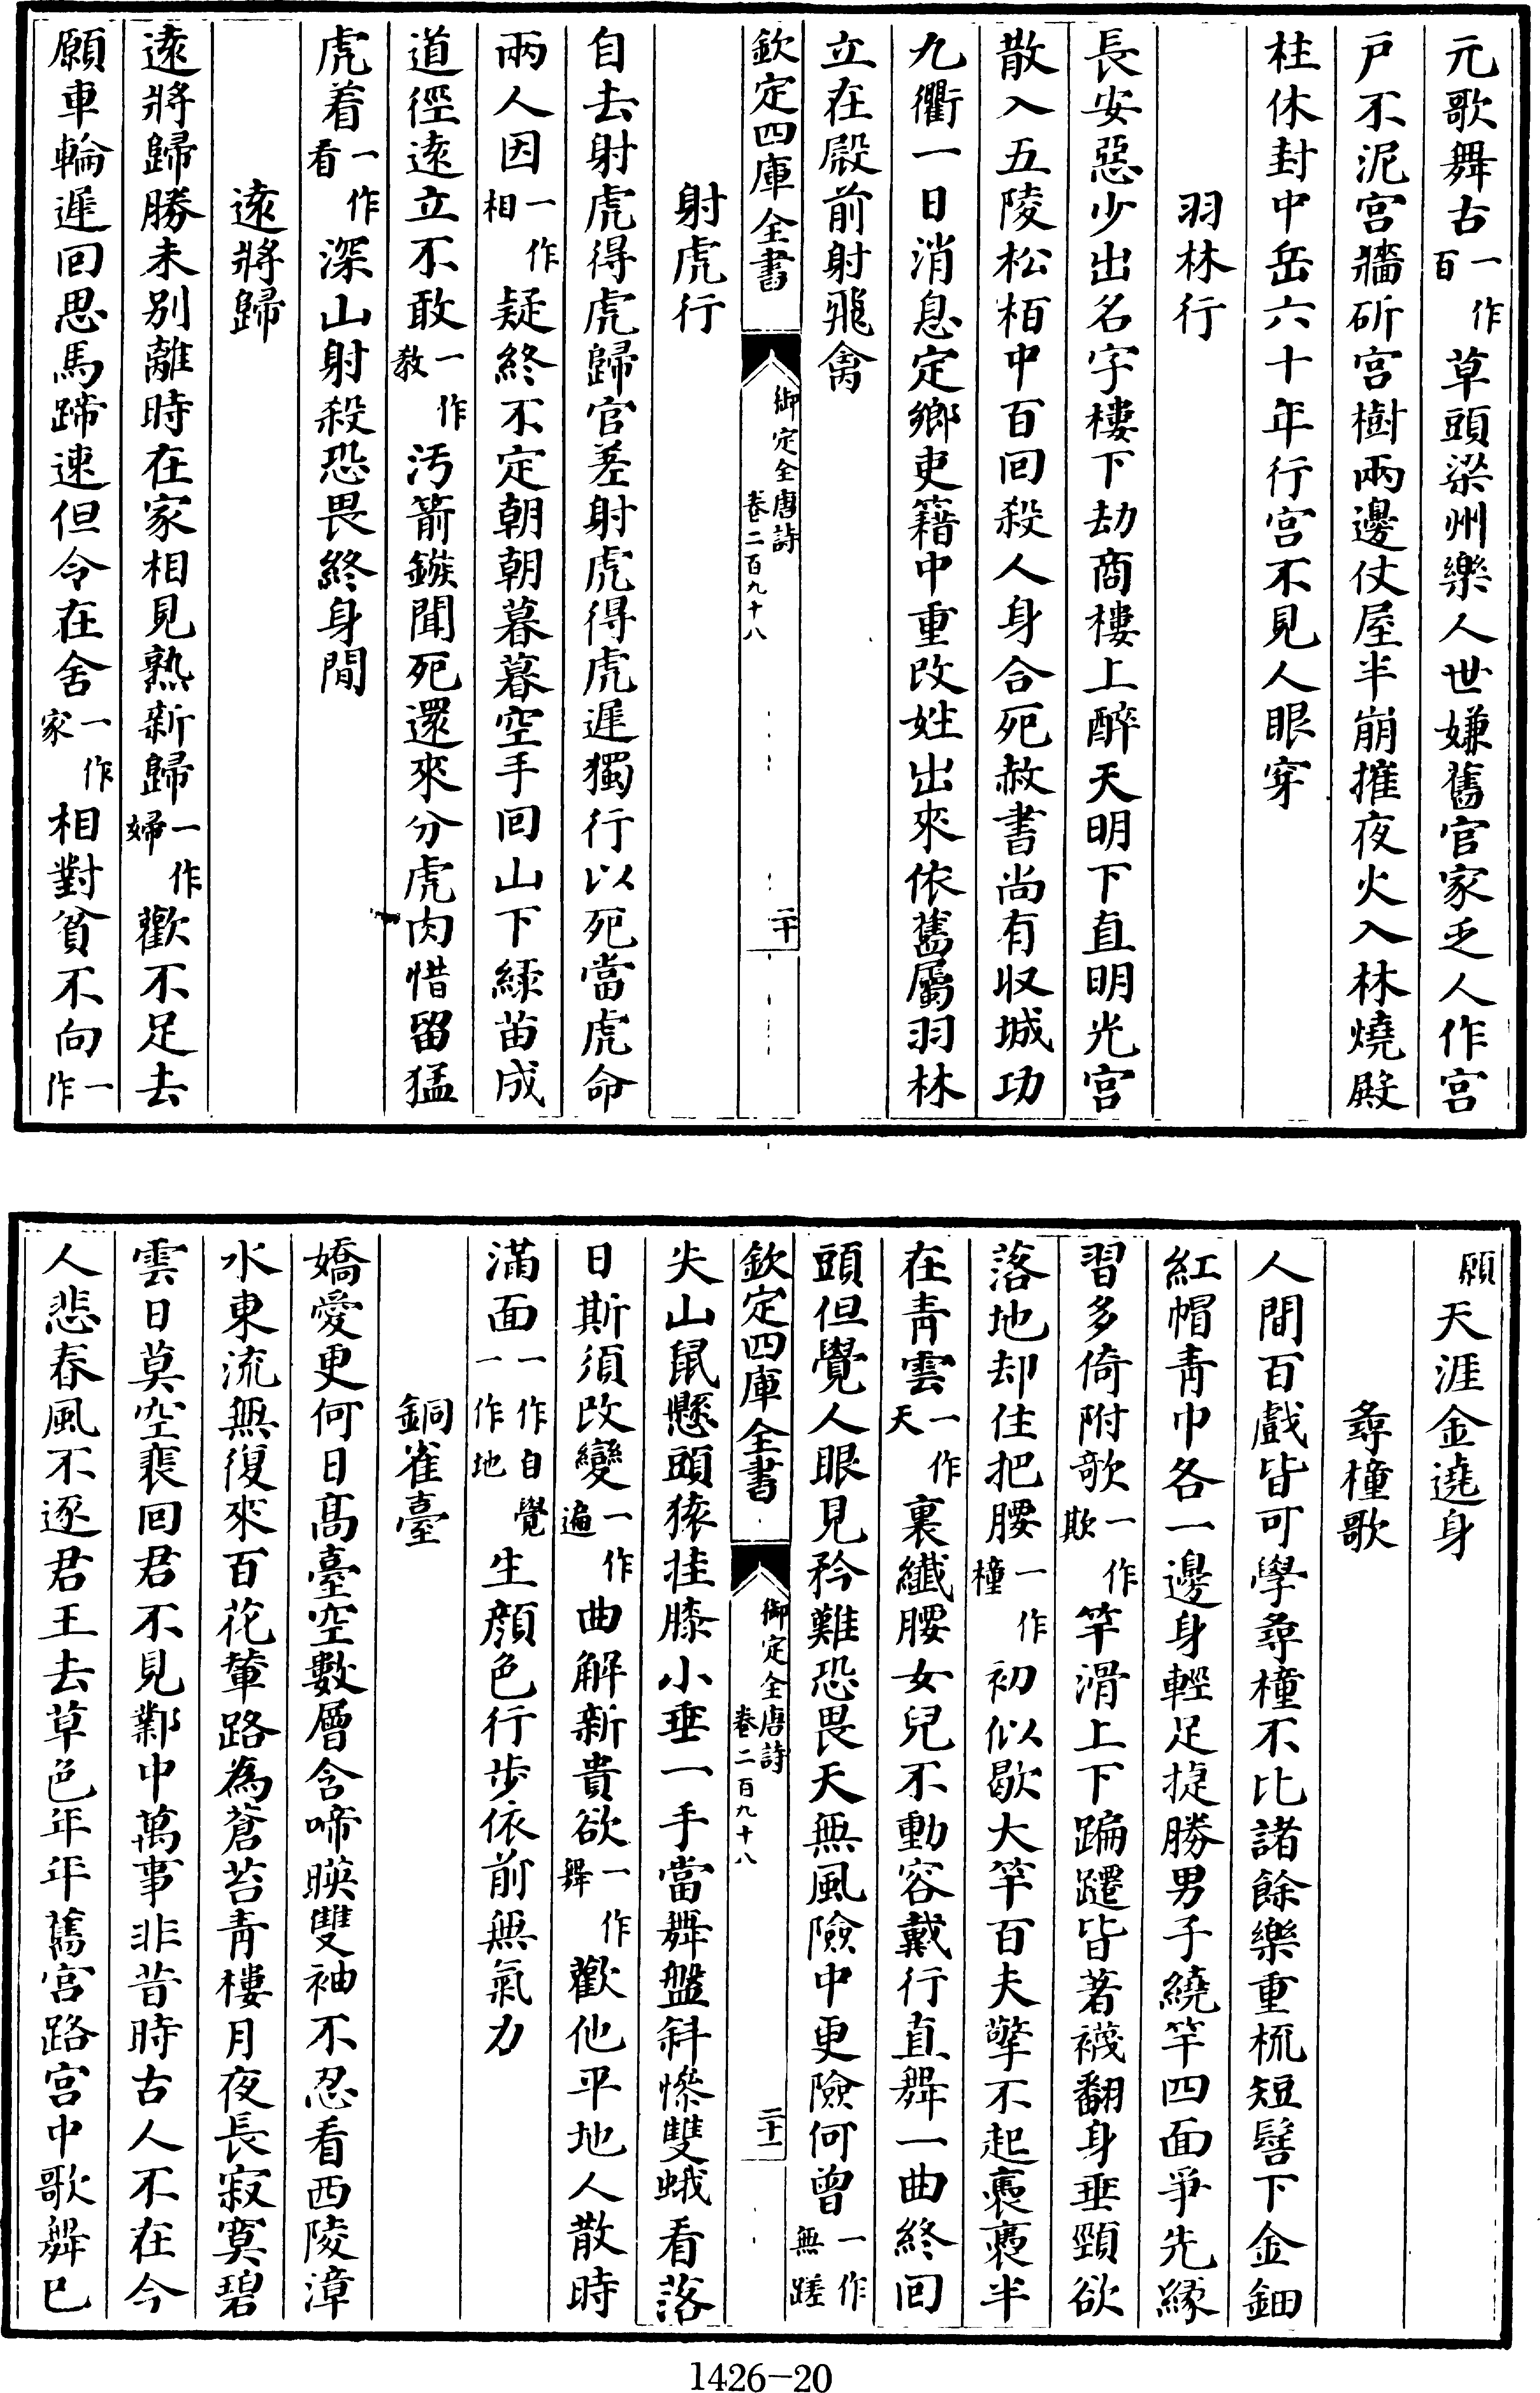 元歌舞古一作百草頭梁州樂人世嫌舊官家乏人作宮
戶不泥宮牆斫宮樹兩邊仗屋半崩摧夜火入林燒殿
柱休封中岳六十年行宮不見人眼穿
羽林行
長安惡少出名字樓下劫商樓上醉天明下直明光宮
散入五陵松栢中百回殺人身合死赦書尚有収城功
九衢一日消息定鄉吏籍中重改姓出來依舊屬羽林
立在殿前射飛禽
欽定四庫全書 御定全唐詩 卷二百九十八 二十
射虎行
自去射虎得虎歸官差射虎得虎遲獨行以死當虎命
兩人因一作相疑終不定朝朝暮暮空手回山下綠苗成
道徑遠立不敢一作教汚箭鏃聞死還來分虎肉惜留猛
虎着一作看深山射殺恐畏終身閒
遠將歸
遠將歸勝未別離時在家相見熟新歸一作婦歡不足去
願車輪遲回思馬蹄速但令在舍一作家相對貧不向一作
願天涯金遶身
尋橦歌
人間百戲皆可學尋橦不比諸餘樂重梳短髻下金鈿
紅帽青巾各一邊身輕足捷勝男子繞竿四面爭先緣
習多倚附欹一作欺竿滑上下蹁躚皆著襪翻身垂頸欲
落地却住把腰一作橦初似歇大竿百夫擎不起裊裊半
在青雲一作天裏纖腰女兒不動容戴行直舞一曲終回
頭但覺人眼見矜難恐畏天無風險中更險何曾一作無蹉
失山鼠懸頭猿挂膝小垂一手當舞盤斜慘雙蛾看落
日斯須改變一作遍曲解新貴欲一作舞歡他平地人散時
滿面一作自覺一作地生顏色行步依前無氣力
銅雀臺
嬌愛更何日高臺空數層含啼暎雙袖不忍看西陵漳
水東流無復來百花輦路為蒼苔青樓月夜長寂寞碧
雲日莫空裴回君不見鄴中萬事非昔時古人不在今
人悲春風不逐君王去草色年年舊宮路宮中歌舞已
欽定四庫全書 御定全唐詩 卷二百九十八 二十一
1426-20